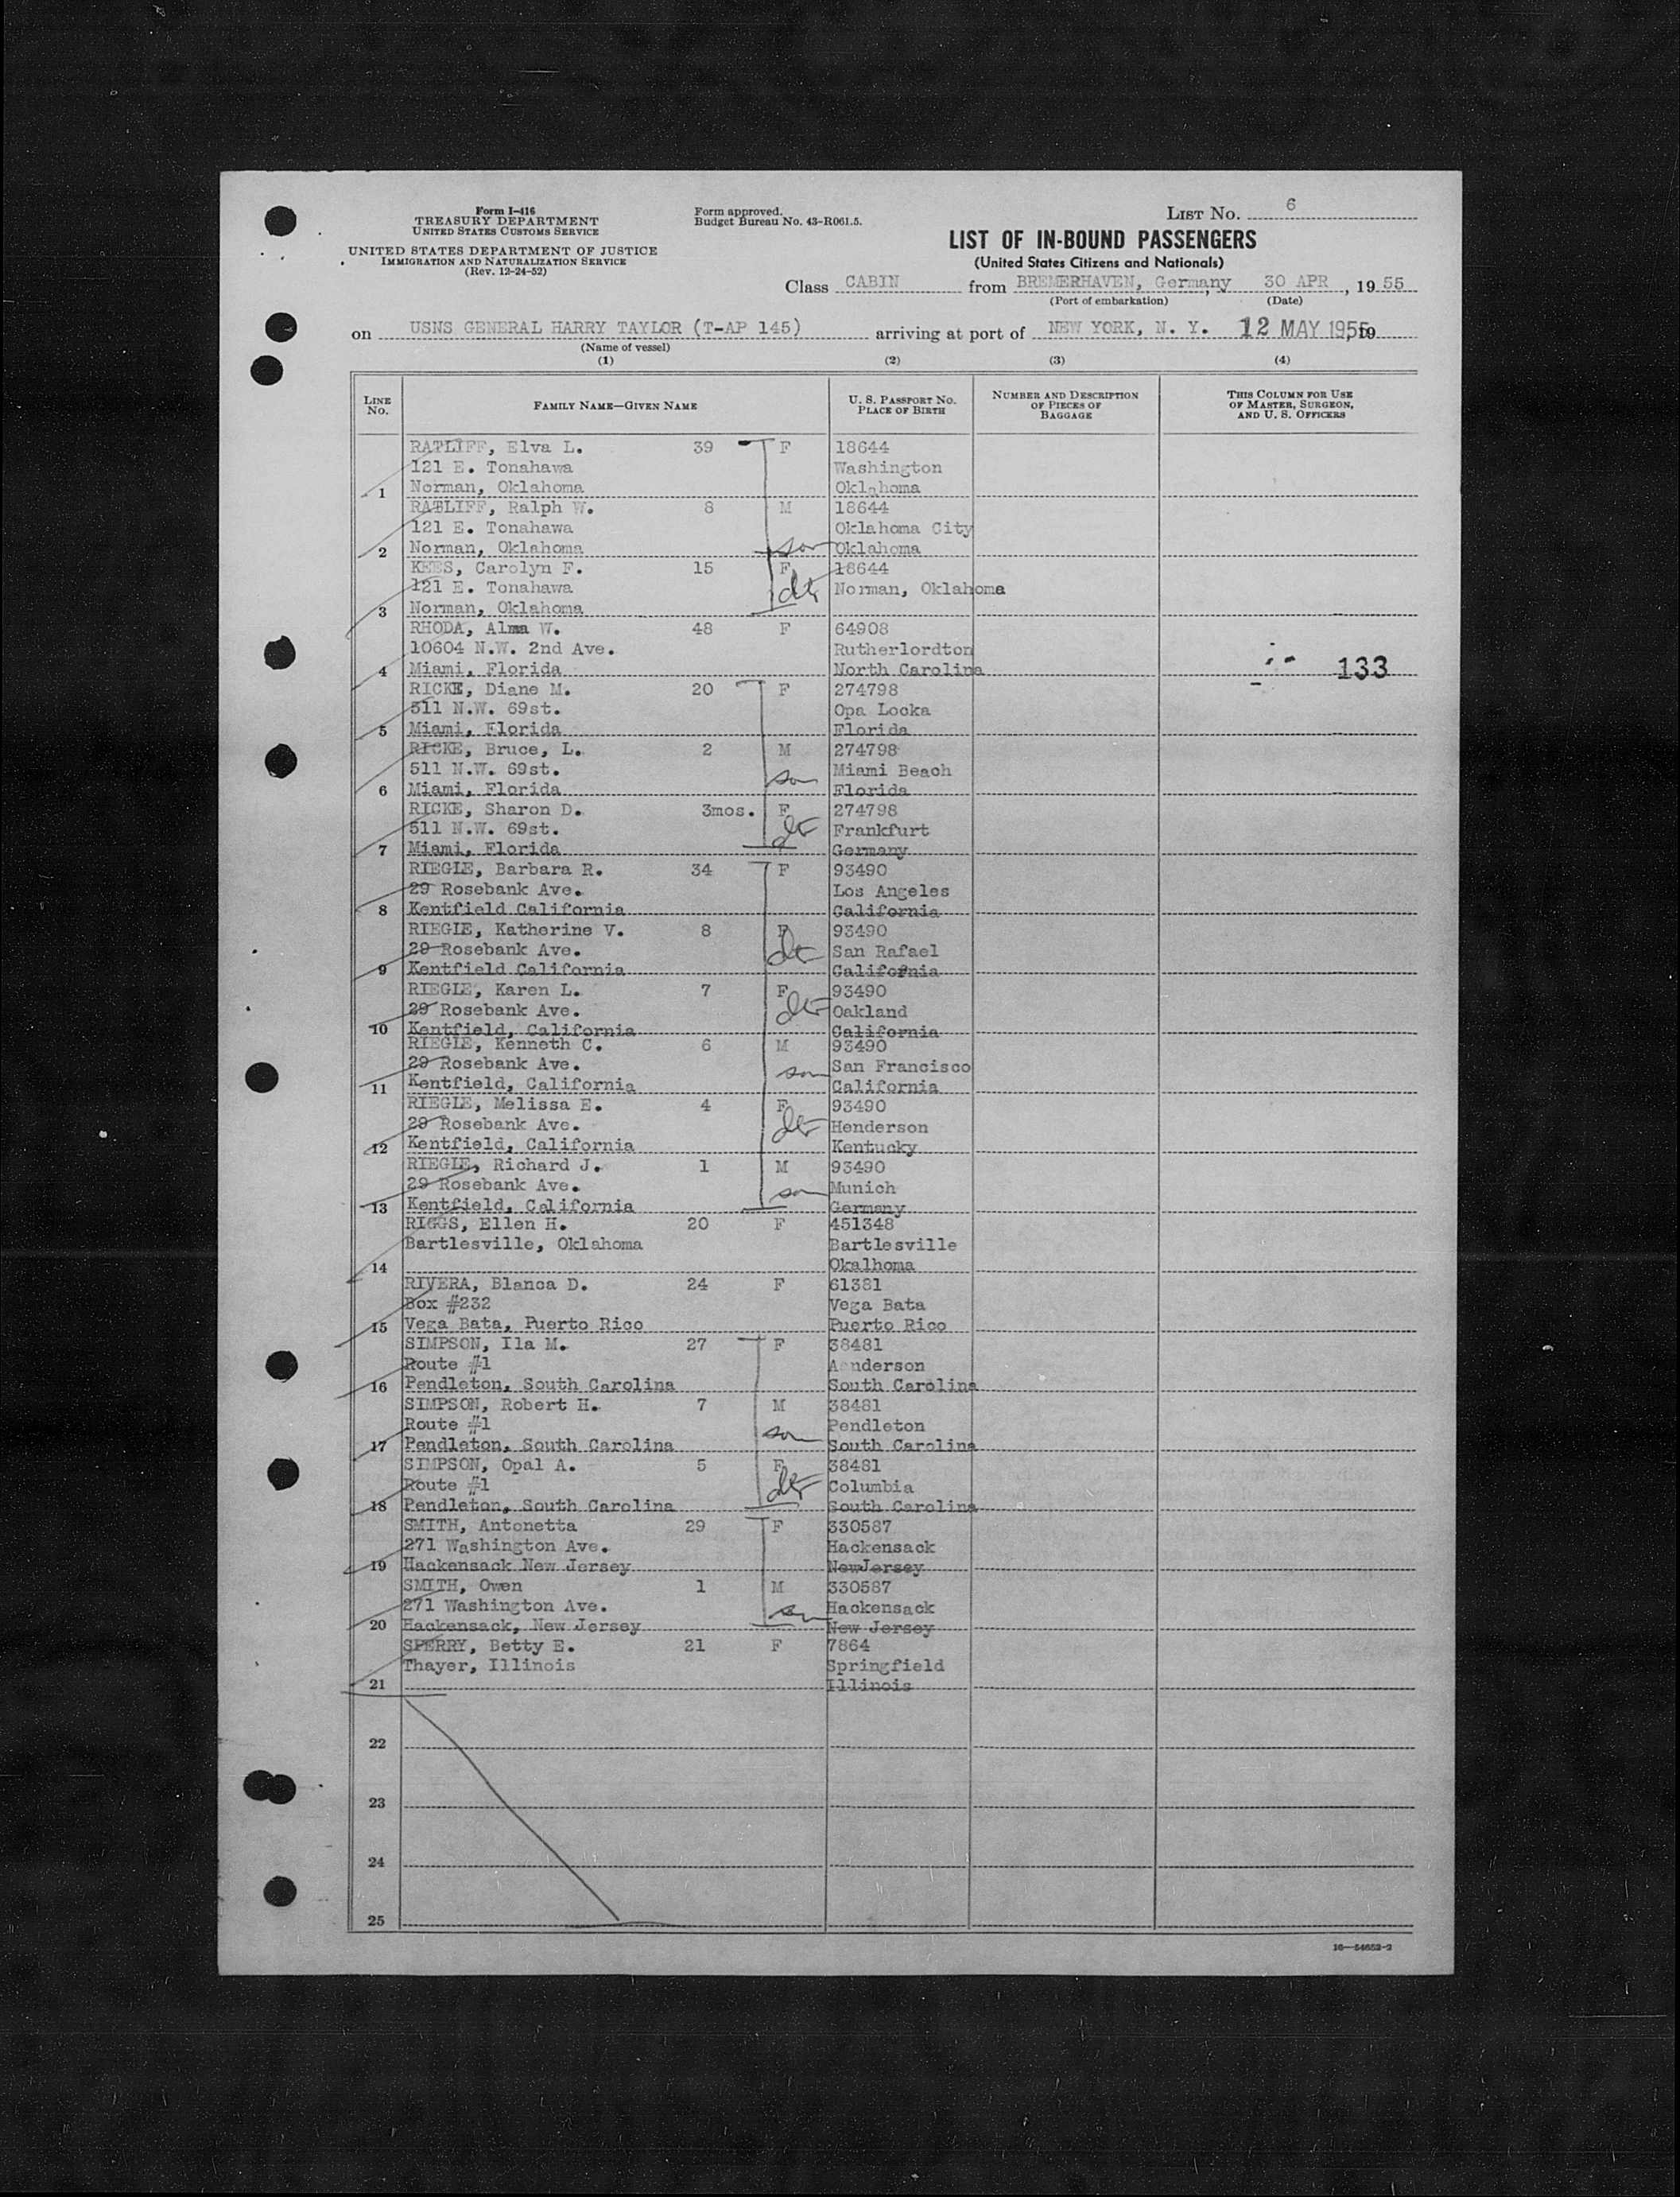 Form I-416
TREASURY DEPARTMENT
UNITED STATES CUSTOMS SERVICE
UNITED STATES DEPARTMENT OF JUSTICE
IMMIGRATION AND NATURALIZATION SERVICE
(Rev. 12-24-52)
Form approved.
Budget Bureau No. 43-R061.5.
LIST NO. 6
LIST OF IN-BOUND PASSENGERS
(United States Citizens and Nationals)
Class CABIN from BREMERHAVEN, Germany, 30 APR, 1955
(Port of embarkation) (Date)
on USNS GENERAL HARRY TAYLOR (T-AP 145) arriving at port of NEW YORK, N. Y. 12 MAY 1955, 19
(Name of vessel)
(1) (2) (3) (4)
LINE NO. FAMILY NAME—GIVEN NAME U. S. PASSPORT NO. PLACE OF BIRTH NUMBER AND DESCRIPTION OF PIECES OF BAGGAGE THIS COLUMN FOR USE OF MASTER, SURGEON, AND U. S. OFFICERS
RATLIFF, Elva L. 39 F 18644
121 E. Tonahawa Washington
1 Norman, Oklahoma Oklahoma
RATLIFF, Ralph W. 8 M 18644
121 E. Tonahawa Oklahoma City
2 Norman, Oklahoma son Oklahoma
KEES, Carolyn F. 15 F 18644
121 E. Tonahawa dtr Norman, Oklahoma
3 Norman, Oklahoma
RHODA, Alma W. 48 F 64908
10604 N.W. 2nd Ave. Rutherlordton
4 Miami, Florida North Carolina 133
RICKE, Diane M. 20 F 274798
511 N.W. 69st. Opa Locka
5 Miami, Florida Florida
RICKE, Bruce, L. 2 M 274798
511 N.W. 69st. son Miami Beach
6 Miami, Florida Florida
RICKE, Sharon D. 3mos. F 274798
511 N.W. 69st. dtr Frankfurt
7 Miami, Florida Germany
RIEGLE, Barbara R. 34 F 93490
29 Rosebank Ave. Los Angeles
8 Kentfield California California
RIEGLE, Katherine V. 8 F 93490
29 Rosebank Ave. dtr San Rafael
9 Kentfield California California
RIEGLE, Karen L. 7 F 93490
29 Rosebank Ave. dtr Oakland
10 Kentfield, California California
RIEGLE, Kenneth C. 6 M 93490
29 Rosebank Ave. son San Francisco
11 Kentfield, California California
RIEGLE, Melissa E. 4 F 93490
29 Rosebank Ave. dtr Henderson
12 Kentfield, California Kentucky
RIEGLE, Richard J. 1 M 93490
29 Rosebank Ave. son Munich
13 Kentfield, California Germany
RIGGS, Ellen H. 20 F 451348
Bartlesville, Oklahoma Bartlesville
14 Okalhoma
RIVERA, Blanca D. 24 F 61381
Box #232 Vega Bata
15 Vega Bata, Puerto Rico Puerto Rico
SIMPSON, Ila M. 27 F 38481
Route #1 Aanderson
16 Pendleton, South Carolina South Carolina
SIMPSON, Robert H. 7 M 38481
Route #1 son Pendleton
17 Pendleton, South Carolina South Carolina
SIMPSON, Opal A. 5 F 38481
Route #1 dtr Columbia
18 Pendleton, South Carolina South Carolina
SMITH, Antonetta 29 F 330587
271 Washington Ave. Hackensack
19 Hackensack New Jersey NewJersey
SMITH, Owen 1 M 330587
271 Washington Ave. son Hackensack
20 Hackensack, New Jersey New Jersey
SPERRY, Betty E. 21 F 7864
Thayer, Illinois Springfield
21 Illinois
22
23
24
25
16—54652-2